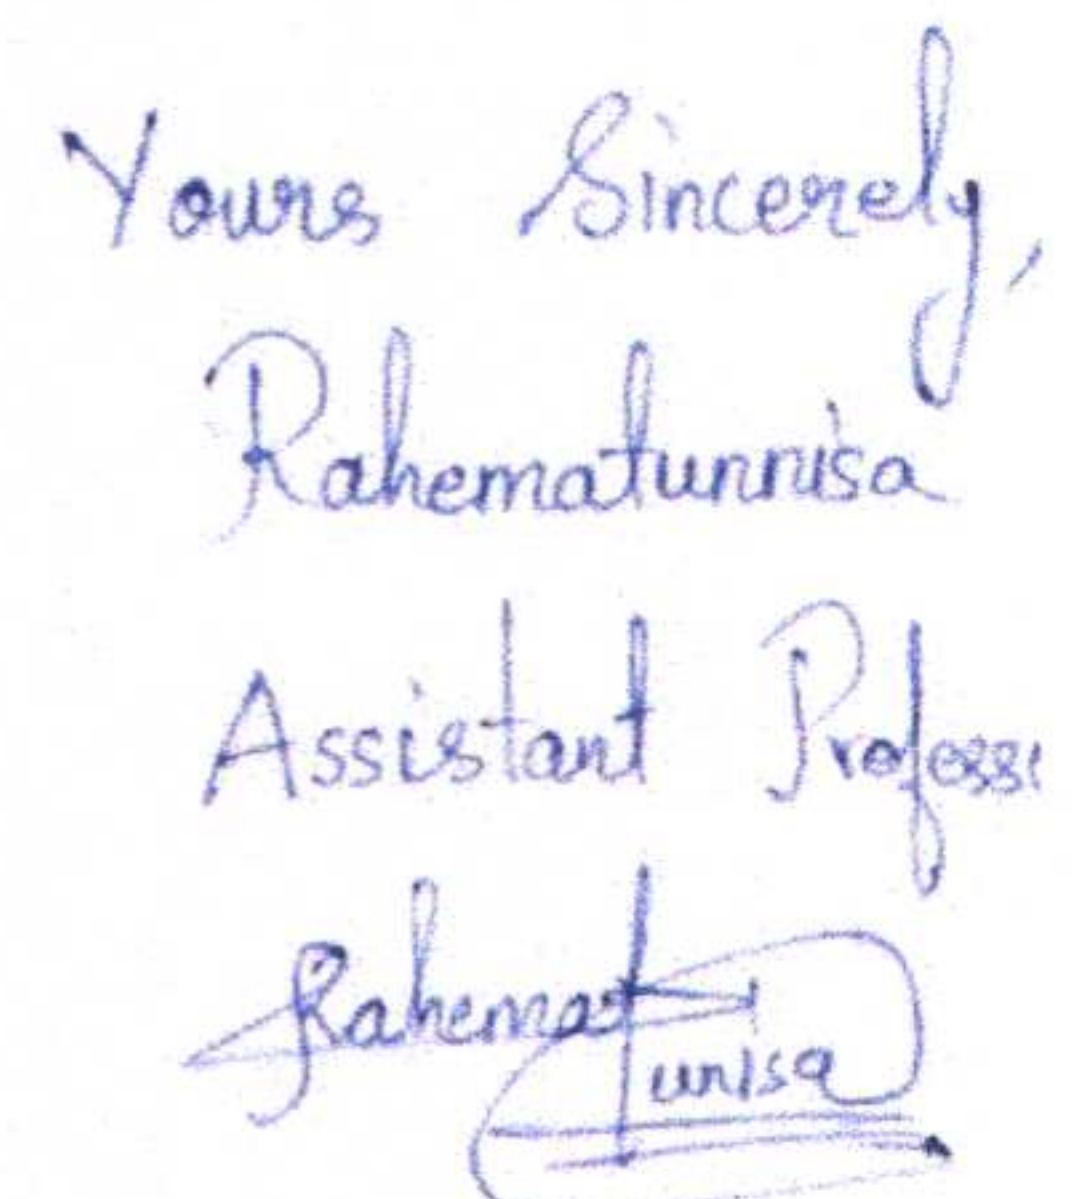 Yours Sincerely,
Rahematunnisa
Assistant Profess
Rahemat
unisa